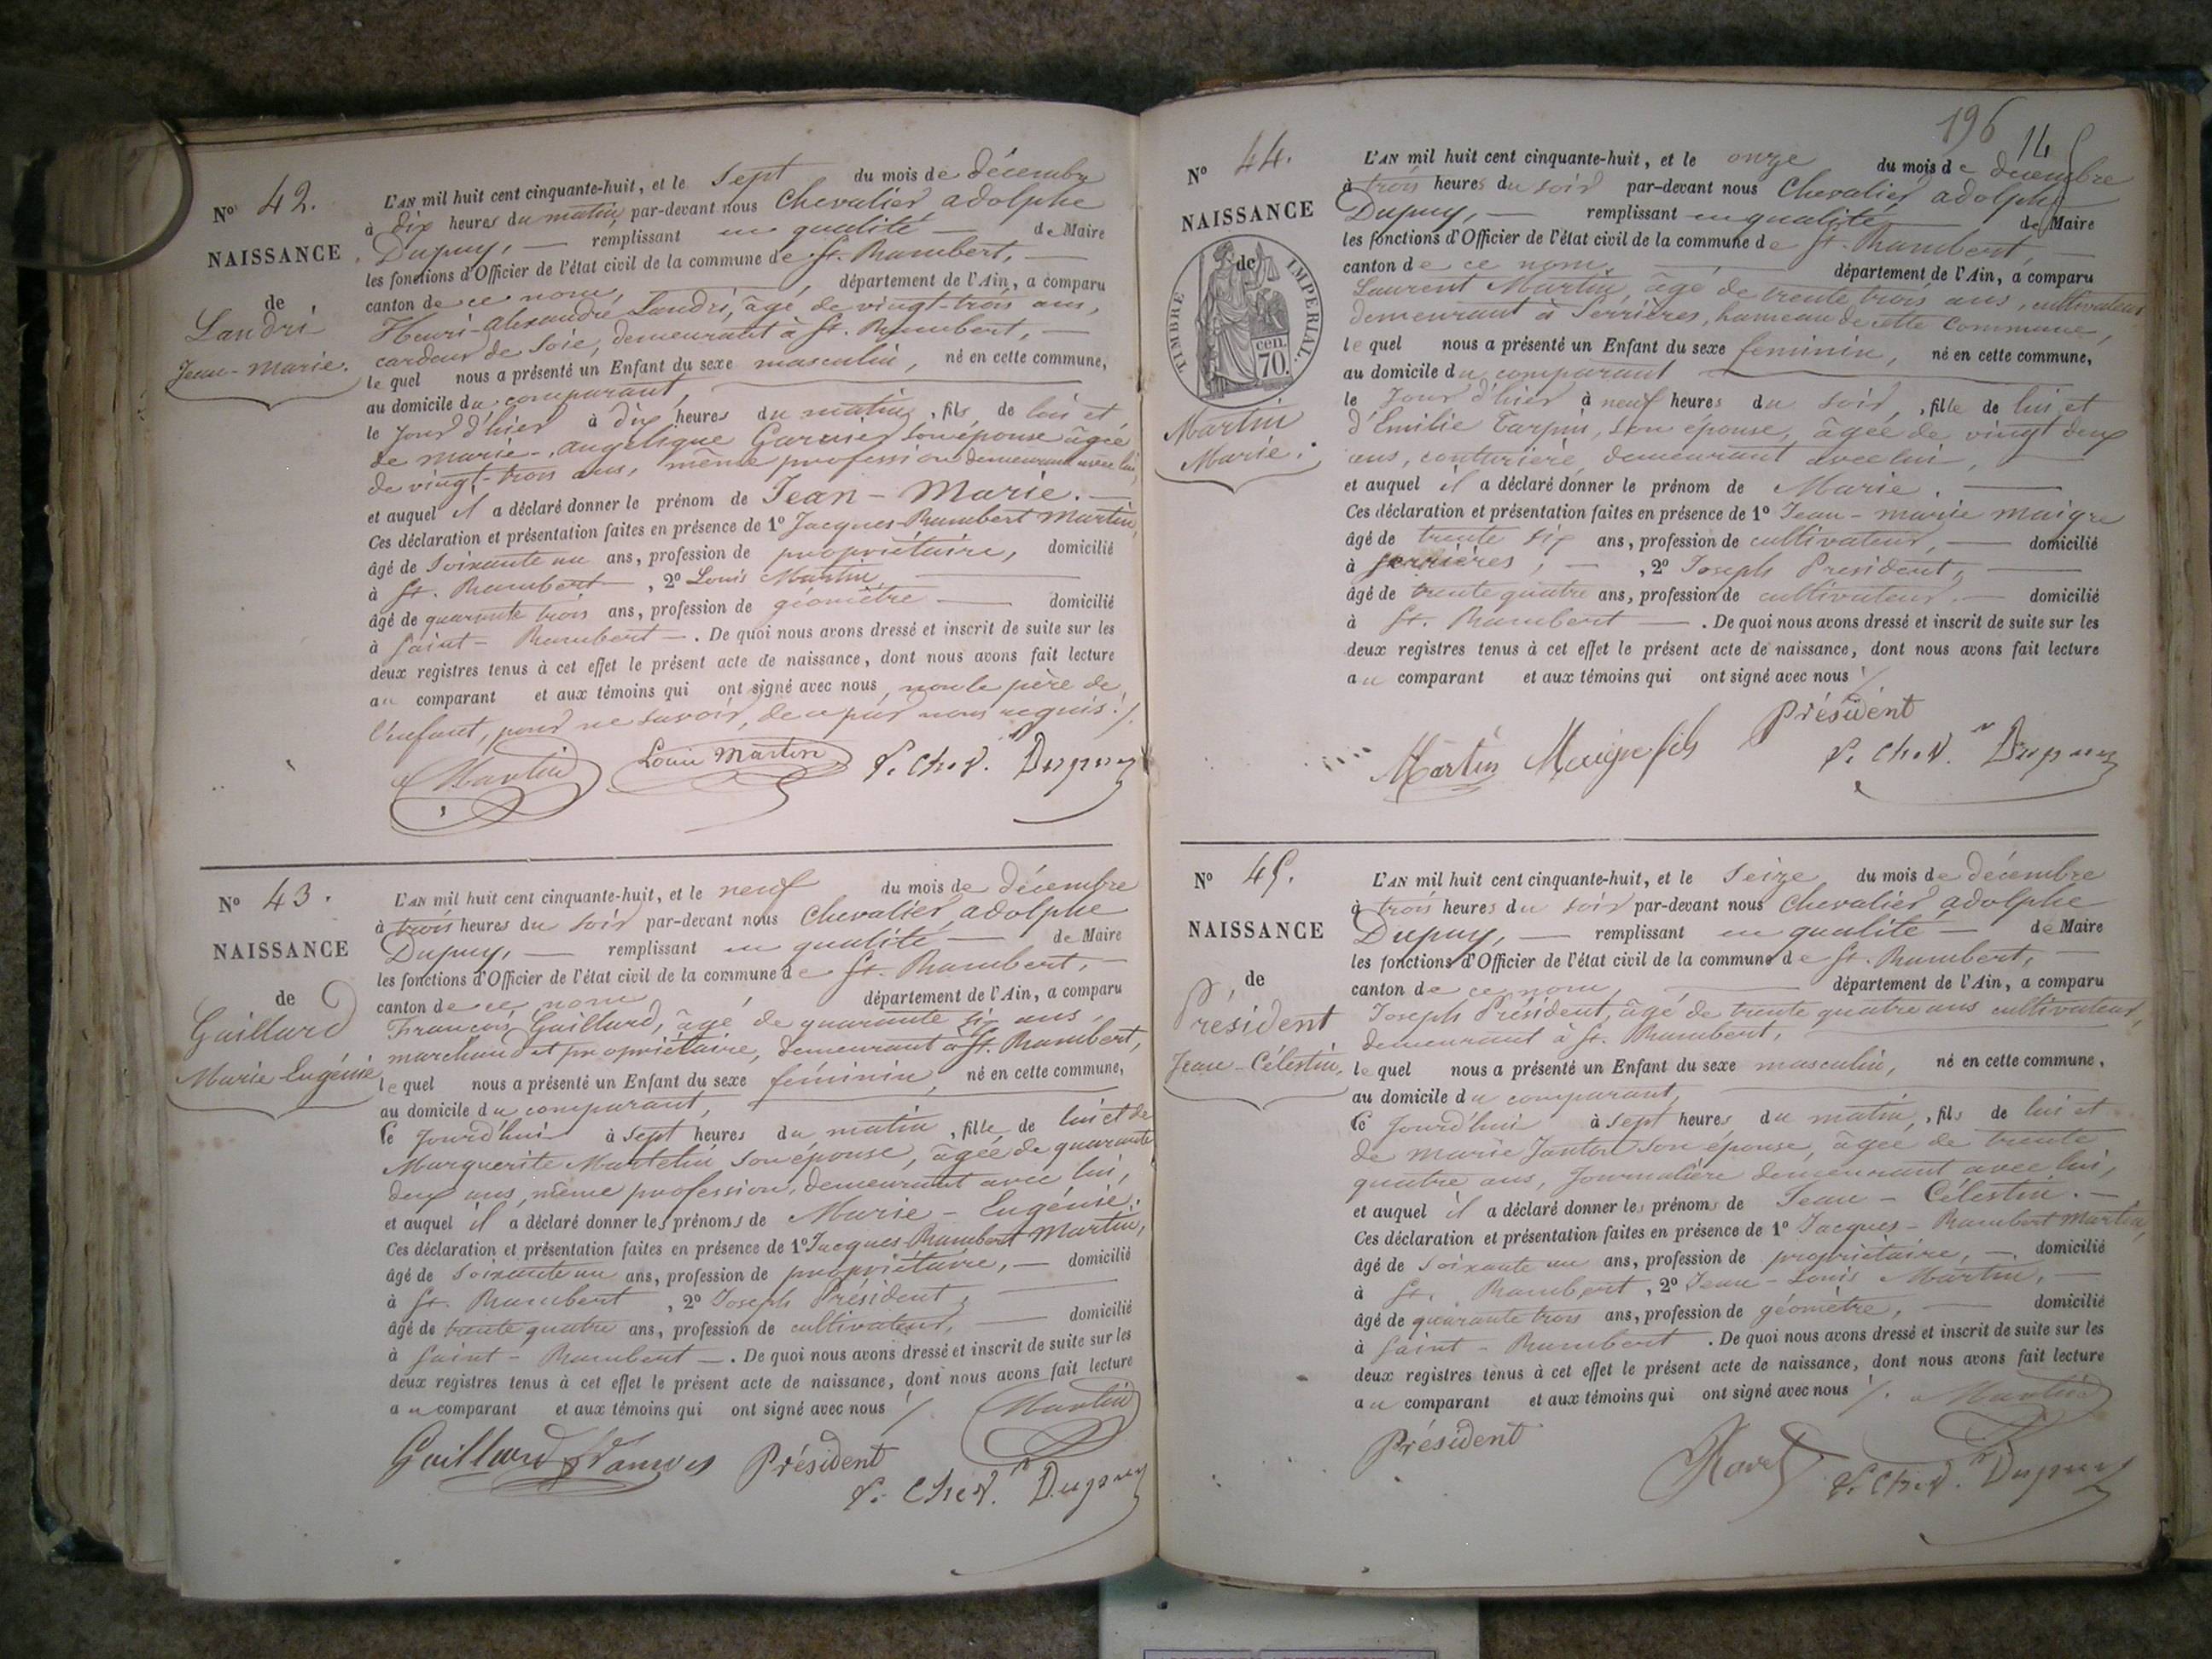 No 42.
NAISSANCE
de
Landri
Jean-Marie.
L'AN mil huit cent cinquante-huit, et le Sept du mois de décembre
à dix heures du matin par-devant nous Chevalier adolphe
Dupuy, — remplissant en qualité — de Maire
les fonctions d'Officier de l'état civil de la commune de St. Rambert, —
canton de ce nom, département de l'Ain, a comparu
Henri-Alexandre Landri, âgé de vingt-trois ans,
cardeur de Soie, demeurant à St. Rambert, —
le quel nous a présenté un Enfant du sexe masculin, né en cette commune,
au domicile du comparant,
le jour d'hier à dix heures du matin, fils de lui et
de marie-angélique Garnier son épouse âgée
de vingt-trois ans, même profession demeurant avec lui,
et auquel il a déclaré donner le prénom de Jean-Marie. —
Ces déclaration et présentation faites en présence de 1º Jacques-Rambert Martin,
âgé de Soixante un ans, profession de propriétaire, domicilié
à St. Rambert —, 2º Louis Martin,
âgé de quarante trois ans, profession de géomètre — domicilié
à Saint-Rambert —. De quoi nous avons dressé et inscrit de suite sur les
deux registres tenus à cet effet le présent acte de naissance, dont nous avons fait lecture
au comparant et aux témoins qui ont signé avec nous, non le père de
l'enfant, pour ne savoir, de ce par nous requis ./.
Martin Louis Martin Dupuy
No 43.
NAISSANCE
de
Gaillard
Marie-Eugénie
L'AN mil huit cent cinquante-huit, et le neuf du mois de décembre
à trois heures du soir par-devant nous Chevalier adolphe
Dupuy, — remplissant en qualité — de Maire
les fonctions d'Officier de l'état civil de la commune de St. Rambert, —
canton de ce nom département de l'Ain, a comparu
François Gaillard, âgé de quarante six ans,
marchand et propriétaire, demeurant à St. Rambert,
le quel nous a présenté un Enfant du sexe féminin, né en cette commune,
au domicile du comparant,
le jourd'hui à Sept heures du matin, fille de lui et de
Marguerite Martelin son épouse, âgée de quarante
deux ans, même profession, demeurant avec lui,
et auquel il a déclaré donner les prénoms de Marie-Eugénie.
Ces déclaration et présentation faites en présence de 1º Jacques-Rambert Martin,
âgé de Soixante un ans, profession de propriétaire, — domicilié
à St. Rambert, 2º Joseph Président,
âgé de trente quatre ans, profession de cultivateur, — domicilié
à Saint-Rambert —. De quoi nous avons dressé et inscrit de suite sur les
deux registres tenus à cet effet le présent acte de naissance, dont nous avons fait lecture
au comparant et aux témoins qui ont signé avec nous ./. Martin
Gaillard François Président
Dupuy
196
14
No 44.
NAISSANCE
de
TIMBRE IMPERIAL.
70 cen
Martin
Marie.
L'AN mil huit cent cinquante-huit, et le onze du mois de décembre
à trois heures du soir par-devant nous Chevalier adolphe
Dupuy, — remplissant en qualité — de Maire
les fonctions d'Officier de l'état civil de la commune de St. Rambert, —
canton de ce nom, département de l'Ain, a comparu
Laurent Martin, âgé de trente trois ans, cultivateur
demeurant à Serrières, hameau de cette commune,
le quel nous a présenté un Enfant du sexe féminin, né en cette commune,
au domicile du comparant
le Jour d'hier à neuf heures du soir, fille de lui et
d'Emilie Tarpin, son épouse, âgée de vingt deux
ans, couturière, demeurant avec lui, —
et auquel il a déclaré donner le prénom de Marie. —
Ces déclaration et présentation faites en présence de 1º Jean-marie maigre
âgé de trente six ans, profession de cultivateur, — domicilié
à Serrières, —, 2º Joseph Président,
âgé de trente quatre ans, profession de cultivateur, — domicilié
à St. Rambert —. De quoi nous avons dressé et inscrit de suite sur les
deux registres tenus à cet effet le présent acte de naissance, dont nous avons fait lecture
au comparant et aux témoins qui ont signé avec nous ./.
Président
Martin Maigre fils Dupuy
No 45.
NAISSANCE
de
Président
Jean-Célestin,
L'AN mil huit cent cinquante-huit, et le Seize du mois de décembre
à trois heures du soir par-devant nous Chevalier adolphe
Dupuy, — remplissant en qualité — de Maire
les fonctions d'Officier de l'état civil de la commune de St. Rambert, —
canton de ce nom, département de l'Ain, a comparu
Joseph Président, âgé de trente quatre ans cultivateur,
demeurant à St. Rambert,
le quel nous a présenté un Enfant du sexe masculin, né en cette commune,
au domicile du comparant,
le Jourd'hui à Sept heures du matin, fils de lui et
de marie son épouse, âgée de trente
quatre ans, Journalière demeurant avec lui,
et auquel il a déclaré donner les prénoms de Jean-Célestin. —
Ces déclaration et présentation faites en présence de 1º Jacques-Rambert Martin,
âgé de Soixante un ans, profession de propriétaire, — domicilié
à St. Rambert, 2º Jean-Louis Martin, —
âgé de quarante trois ans, profession de géomètre, — domicilié
à Saint-Rambert. De quoi nous avons dressé et inscrit de suite sur les
deux registres tenus à cet effet le présent acte de naissance, dont nous avons fait lecture
au comparant et aux témoins qui ont signé avec nous ./. Martin
Président
Dupuy